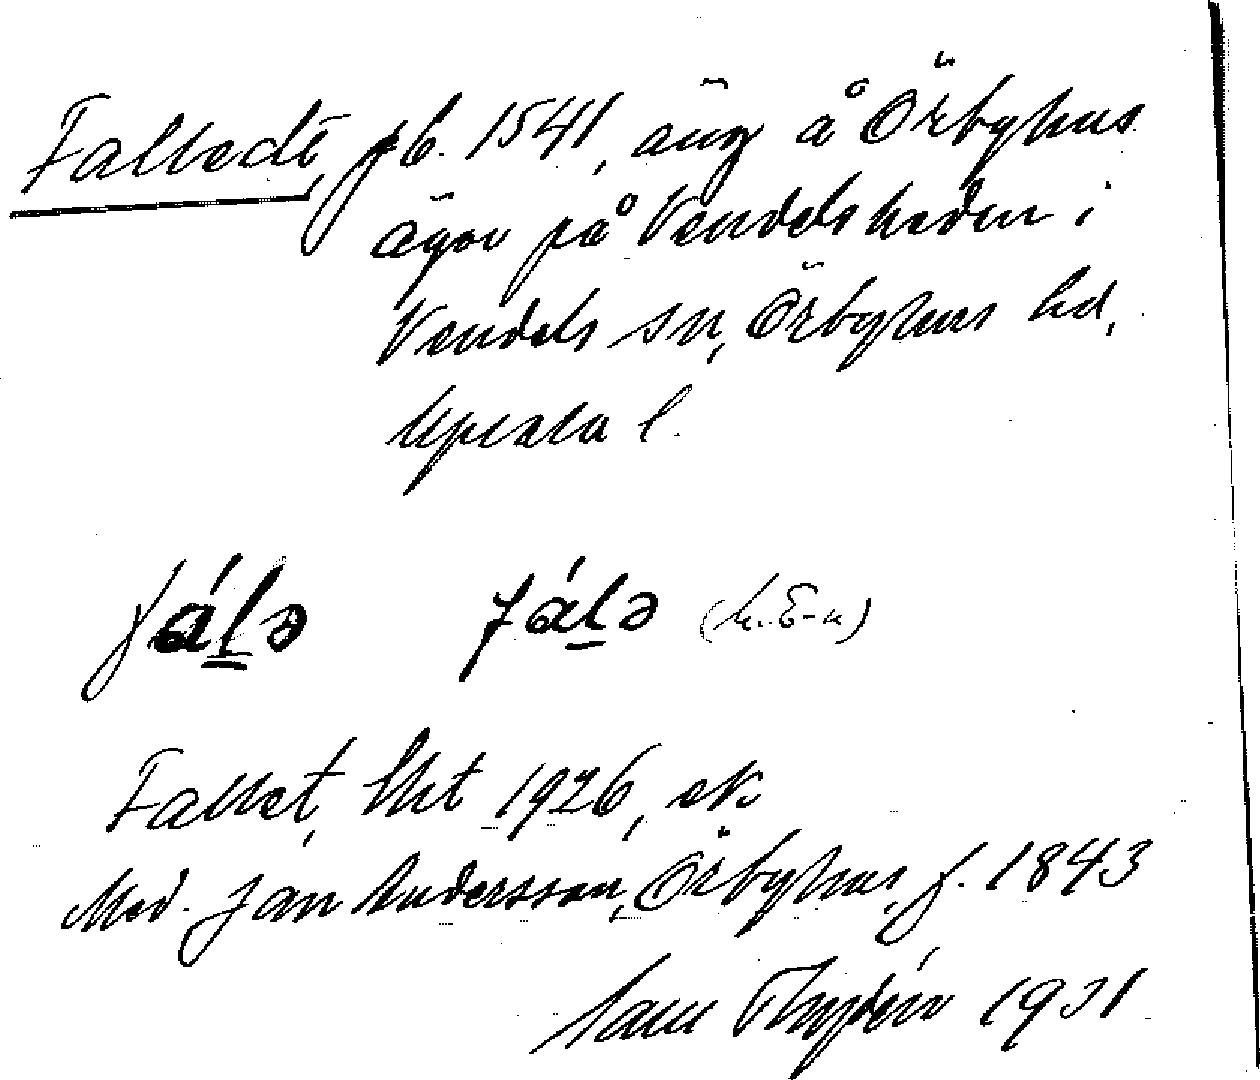 Fallede, jb. 1541, äng å Örbyhus
ägor på Vendelsheden i
Vendels sn, Örbyhus hd,
Upsala l.
fálə fálə
Fallet, lht 1926, ek
Med. Jan Andersson, Örbyhus, f. 1843
Sam Thydén 1931